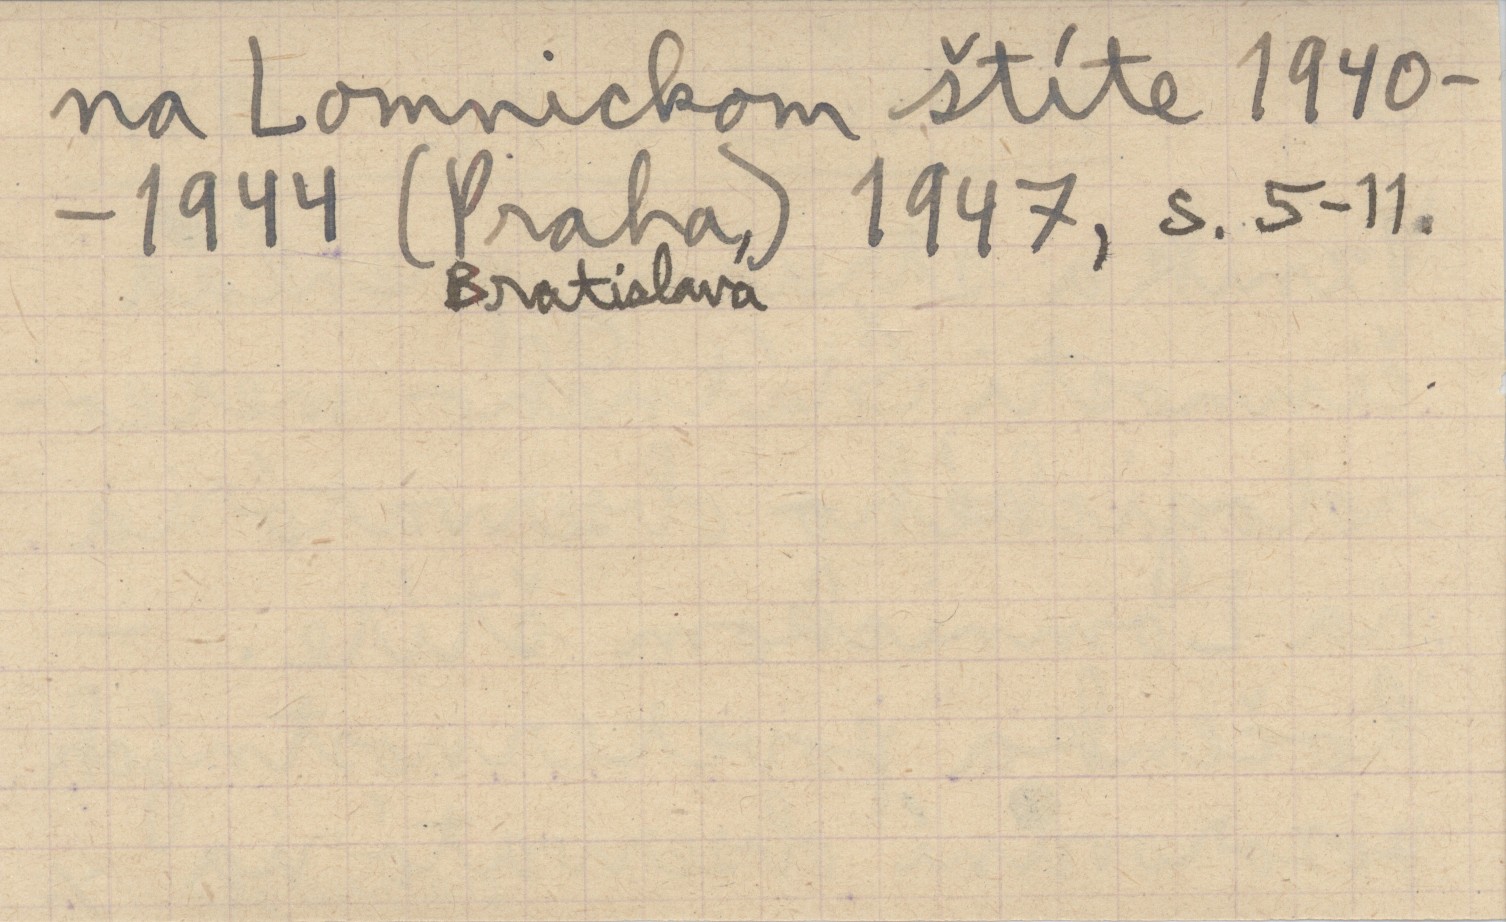 na Lomnickom štíte 1940-
-1944 (Praha,) 1947, s. 5-11.
Bratislava